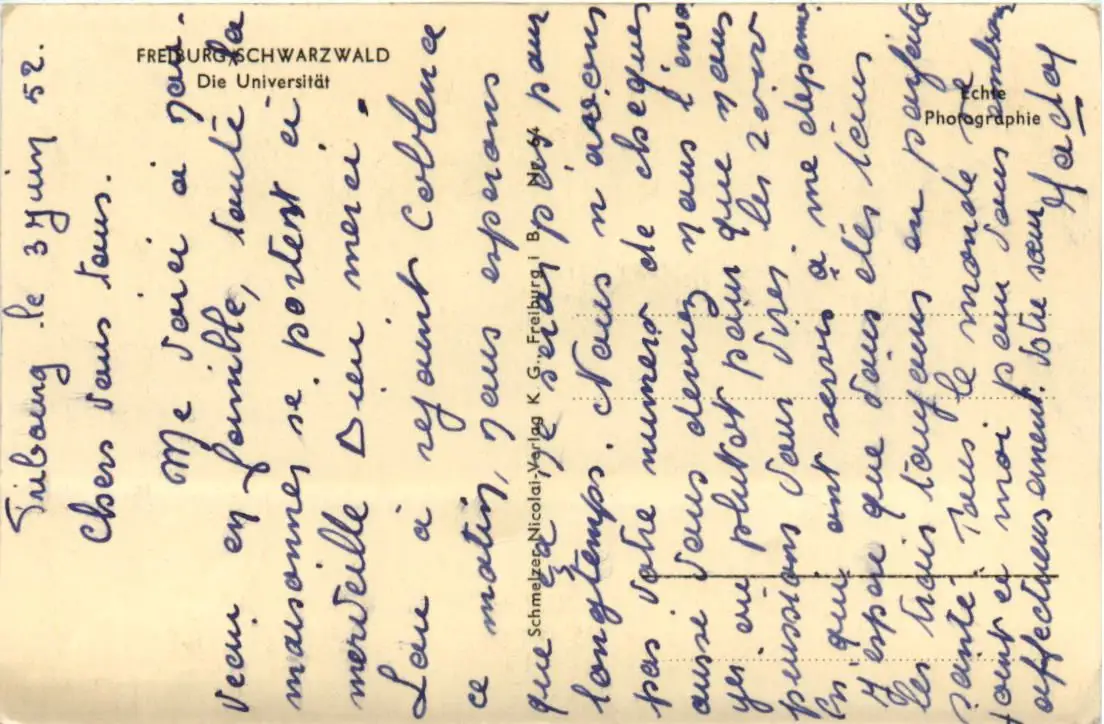 FREIBURG/SCHWARZWALD
Die Universität
Echte
Photographie
Schmelzer-Nicolai-Verlag K. G., Freiburg i B. Nr 64
Fribourg le 3 Juin 52.
Chers vous tous.
Me voici à nou-
veau en famille, toute la
maisonnée se portent à
merveille Dieu merci.
Lou a rejoint Coblence
ce matin, nous esperons
que ça ne sera pas pour
longtemps. Nous n'avons
pas votre numero de cheque
aussi vous demez nous l'envo
yer ou plutot pour que nous
puissions vous virer les 20.000
qui ont servis à me depanner
J'espere que vous etes tous
les trois toujours en parfaite
santé. Tous le monde se
joint à moi pour vous embrasser
affectueusement. Votre sœur
Mady